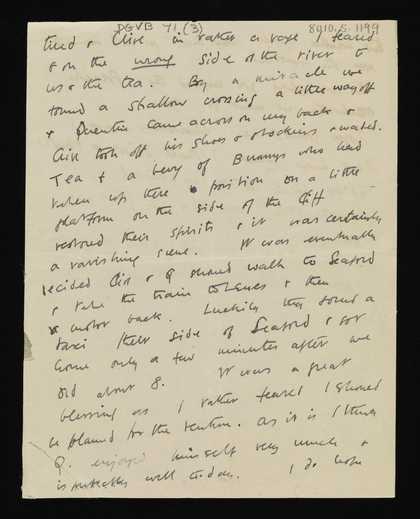 DGVB 71 (3)
8010.5.1199
tired & Clive in rather a rage I feared
& on the wrong side of the river to
us & the tea. By a miracle we
found a shallow crossing a little way off
& Quentin came across on my back &
Clive took off his shoes & stockings & waded.
Tea & a bevy of Bunnys who had
taken up there position on a little
platform on the side of the cliff
restored their spirits & it was certainly
a ravishing scene. It was eventually
decided Clive & Q should walk to Seaford
& take the train to Lewes & then
motor back. Luckily they found a
taxi their side of Seaford & got
home only a few minutes after we
did about 8. It was a great
blessing as I rather feared I should
be blamed for the venture. As it is I think
Q. enjoyed himself very much &
is perfectly well today. I do hope